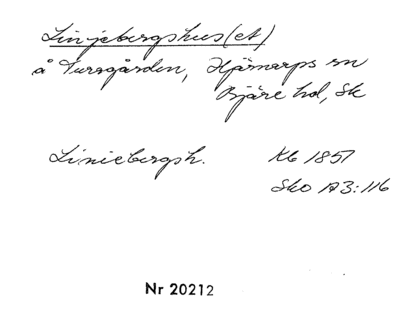 Linjebergshus(et)
å Tursgården, Hjärnarps sn
Bjäre hd, Sk
Liniebergsh. Kb 1857
Sko A3:116
Nr 20212